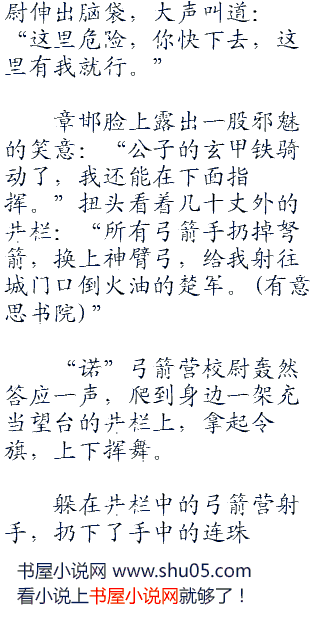 尉伸出脑袋，大声叫道：
“这里危险，你快下去，这
里有我就行。”
章邯脸上露出一股邪魅
的笑意：“公子的玄甲铁骑
动了，我还能在下面指
挥。”扭头看着几十丈外的
井栏：“所有弓箭手扔掉弩
箭，换上神臂弓，给我射往
城门口倒火油的楚军。(有意
思书院)”
“诺”弓箭营校尉轰然
答应一声，爬到身边一架充
当望台的井栏上，拿起令
旗，上下挥舞。
躲在井栏中的弓箭营射
手，扔下了手中的连珠
书屋小说网 www.shu05.com
看小说上书屋小说网就够了！